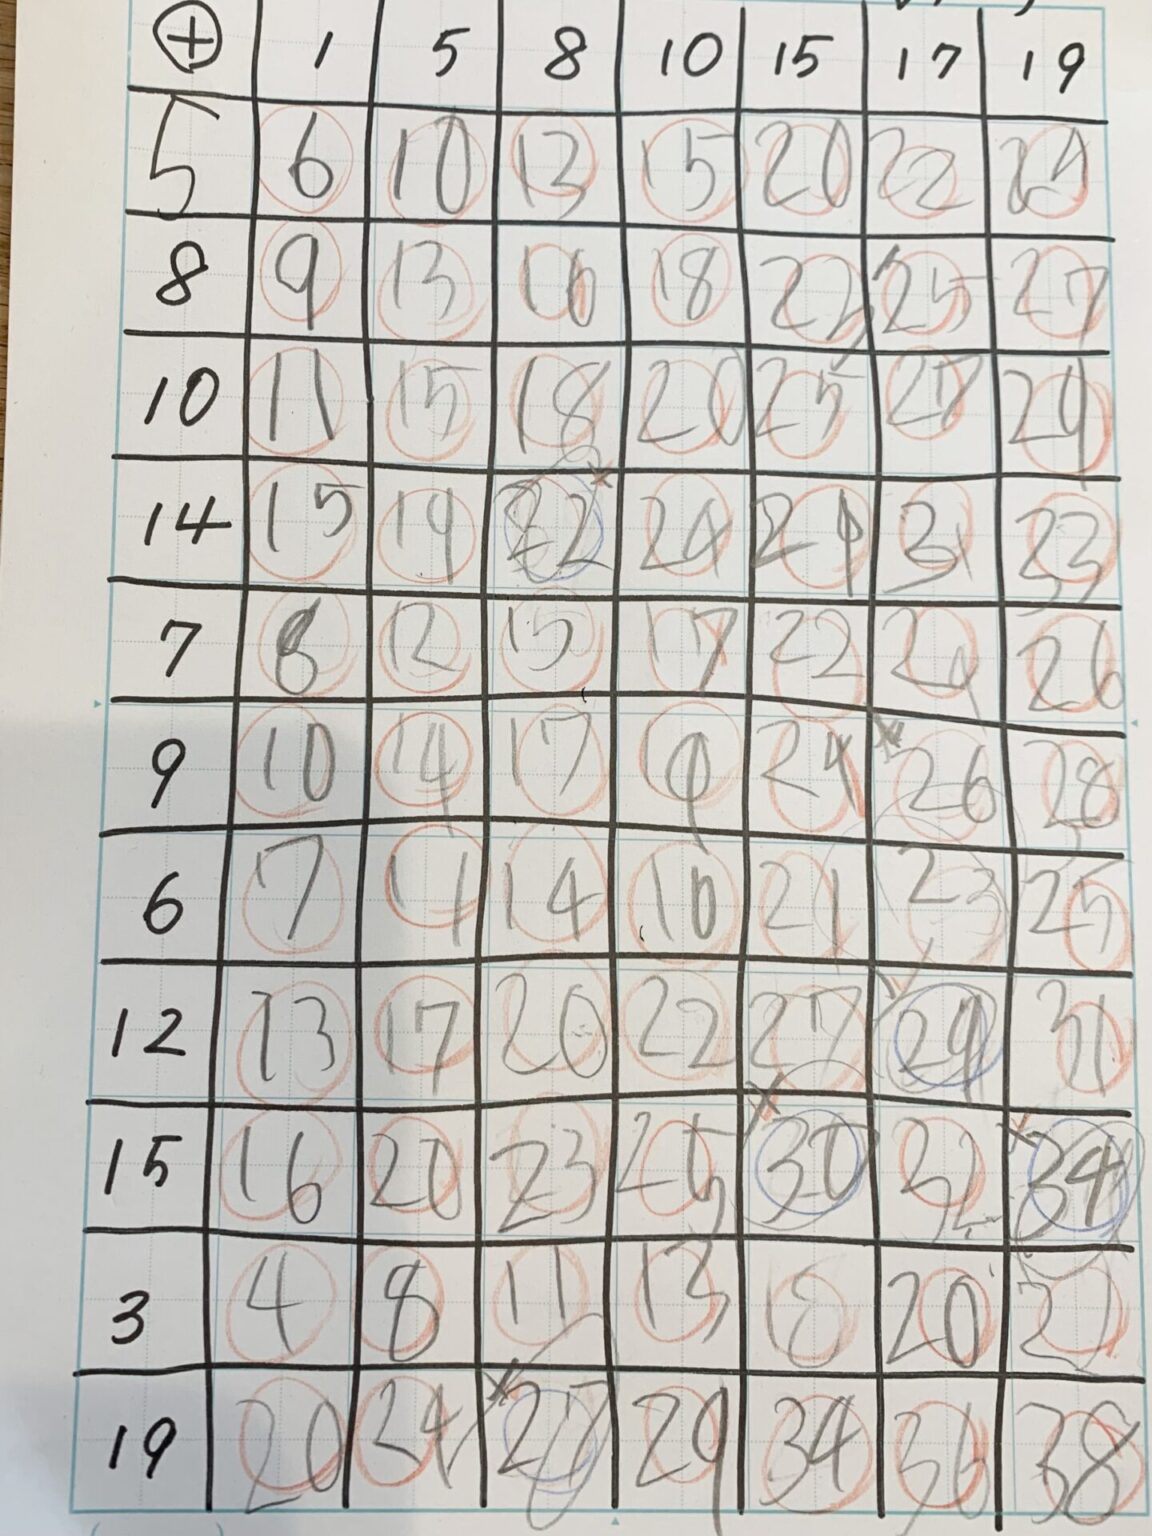 + 1 5 8 10 15 17 19
5 6 10 13 15 20 22 24
8 9 13 16 18 22 25 27
10 11 15 18 20 25 27 29
14 15 19 22 24 29 31 33
7 8 12 15 17 22 24 26
9 10 14 17 19 24 26 28
6 7 11 14 16 21 23 25
12 13 17 20 22 27 29 31
15 16 20 23 25 30 32 34
3 4 8 11 13 18 20 22
19 20 24 27 29 34 36 38